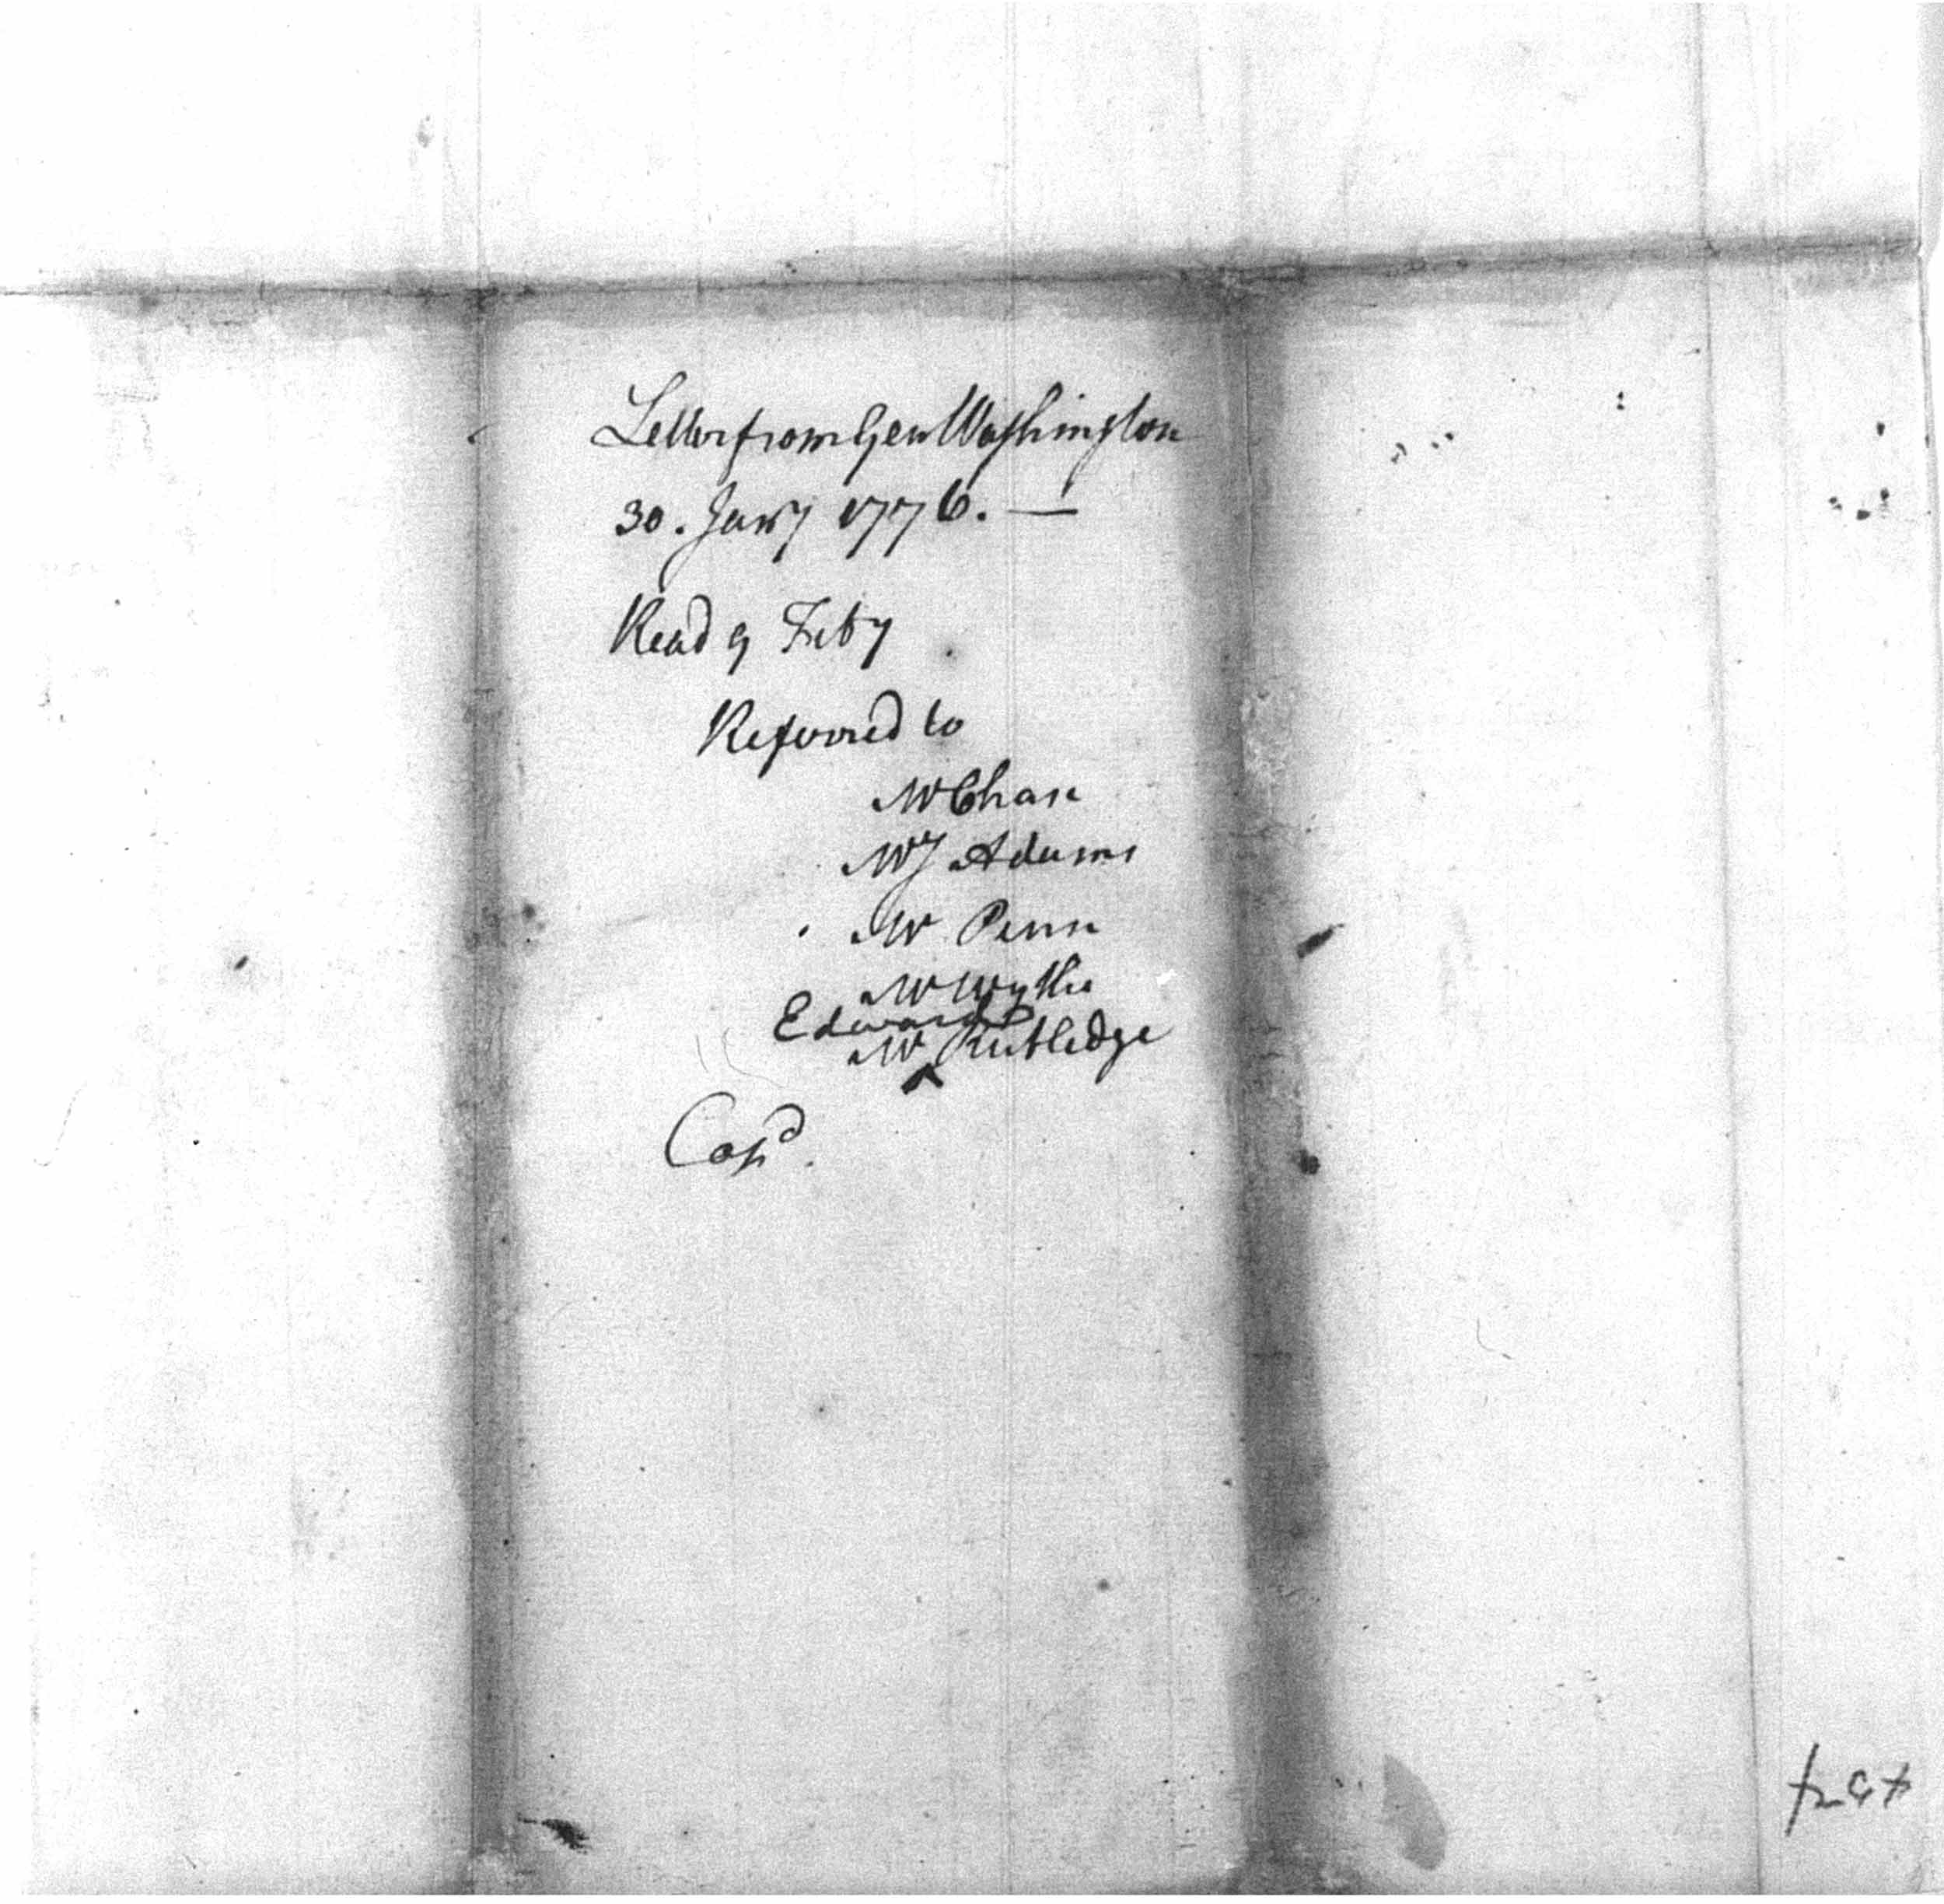 Letter from Gen Washington
30. Jany 1776. —
Read 9 Feby
Referred to
Mr Chase
Mr J Adams
Mr Penn
Mr Wythe
Edward
Mr ^ Rutledge
Copd.